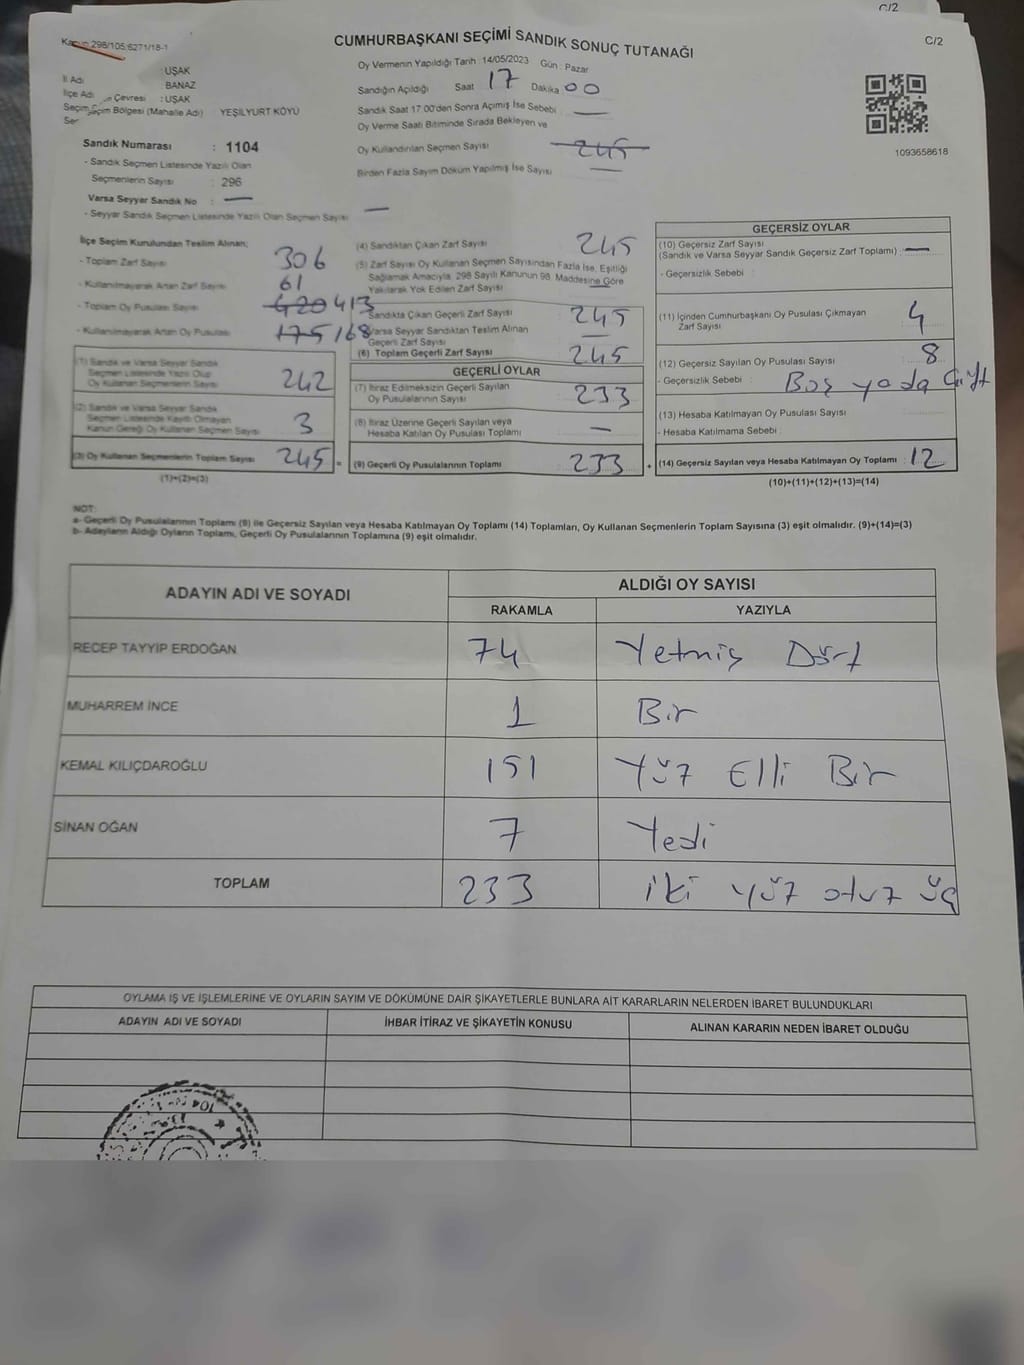 C/2
C/2
Kanun 298/105;6271/18-1
CUMHURBAŞKANI SEÇİMİ SANDIK SONUÇ TUTANAĞI
İl Adı : UŞAK
İlçe Adı BANAZ
Seçim Çevresi : UŞAK
Seçim Bölgesi (Mahalle Adı) YEŞİLYURT KÖYÜ
Sandık Numarası : 1104
- Sandık Seçmen Listesinde Yazılı Olan
Seçmenlerin Sayısı : 296
Varsa Seyyar Sandık No : —
- Seyyar Sandık Seçmen Listesinde Yazılı Olan Seçmen Sayısı —
Oy Vermenin Yapıldığı Tarih : 14/05/2023 Gün : Pazar
Sandığın Açıldığı Saat 17 Dakika 00
Sandık Saat 17.00'den Sonra Açımış İse Sebebi : —
Oy Verme Saati Bitiminde Sırada Bekleyen ve
Oy Kullandırılan Seçmen Sayısı 245
Birden Fazla Sayım Döküm Yapılmış İse Sayısı —
1093658618
İlçe Seçim Kurulundan Teslim Alınan;
- Toplam Zarf Sayısı 306
- Kullanılmayarak Artan Zarf Sayısı 61
- Toplam Oy Pusulası Sayısı 420 413
- Kullanılmayarak Artan Oy Pusulası 175 168
(1) Sandık ve Varsa Seyyar Sandık
Seçmen Listesinde Yazılı Olup
Oy Kullanan Seçmenlerin Sayısı 242
(2) Sandık ve Varsa Seyyar Sandık
Seçmen Listesinde Kayıtlı Olmayan
Kanun Gereği Oy Kullanan Seçmen Sayısı 3
(3) Oy Kullanan Seçmenlerin Toplam Sayısı 245 =
(1)+(2)=(3)
(4) Sandıktan Çıkan Zarf Sayısı 245
(5) Zarf Sayısı Oy Kullanan Seçmen Sayısından Fazla İse, Eşitliği
Sağlamak Amacıyla, 298 Sayılı Kanunun 98. Maddesine Göre
Yakılarak Yok Edilen Zarf Sayısı —
Sandıkta Çıkan Geçerli Zarf Sayısı 245
Varsa Seyyar Sandıktan Teslim Alınan
Geçerli Zarf Sayısı
(6) Toplam Geçerli Zarf Sayısı 245
GEÇERLİ OYLAR
(7) İtiraz Edilmeksizin Geçerli Sayılan
Oy Pusulalarının Sayısı 233
(8) İtiraz Üzerine Geçerli Sayılan veya
Hesaba Katılan Oy Pusulası Toplamı —
(9) Geçerli Oy Pusulalarının Toplamı 233 +
GEÇERSİZ OYLAR
(10) Geçersiz Zarf Sayısı
(Sandık ve Varsa Seyyar Sandık Geçersiz Zarf Toplamı) : —
- Geçersizlik Sebebi :
(11) İçinden Cumhurbaşkanı Oy Pusulası Çıkmayan
Zarf Sayısı 4
(12) Geçersiz Sayılan Oy Pusulası Sayısı 8
- Geçersizlik Sebebi : Boş yada Çift
(13) Hesaba Katılmayan Oy Pusulası Sayısı
- Hesaba Katılmama Sebebi :
(14) Geçersiz Sayılan veya Hesaba Katılmayan Oy Toplamı : 12
(10)+(11)+(12)+(13)=(14)
NOT:
a- Geçerli Oy Pusulalarının Toplamı (9) ile Geçersiz Sayılan veya Hesaba Katılmayan Oy Toplamı (14) Toplamları, Oy Kullanan Seçmenlerin Toplam Sayısına (3) eşit olmalıdır. (9)+(14)=(3)
b- Adayların Aldığı Oyların Toplamı, Geçerli Oy Pusulalarının Toplamına (9) eşit olmalıdır.
ADAYIN ADI VE SOYADI ALDIĞI OY SAYISI
RAKAMLA YAZIYLA
RECEP TAYYİP ERDOĞAN 74 Yetmiş Dört
MUHARREM İNCE 1 Bir
KEMAL KILIÇDAROĞLU 151 Yüz Elli Bir
SİNAN OĞAN 7 Yedi
TOPLAM 233 iki yüz otuz üç
OYLAMA İŞ VE İŞLEMLERİNE VE OYLARIN SAYIM VE DÖKÜMÜNE DAİR ŞİKAYETLERLE BUNLARA AİT KARARLARIN NELERDEN İBARET BULUNDUKLARI
ADAYIN ADI VE SOYADI İHBAR İTİRAZ VE ŞİKAYETİN KONUSU ALINAN KARARIN NEDEN İBARET OLDUĞU